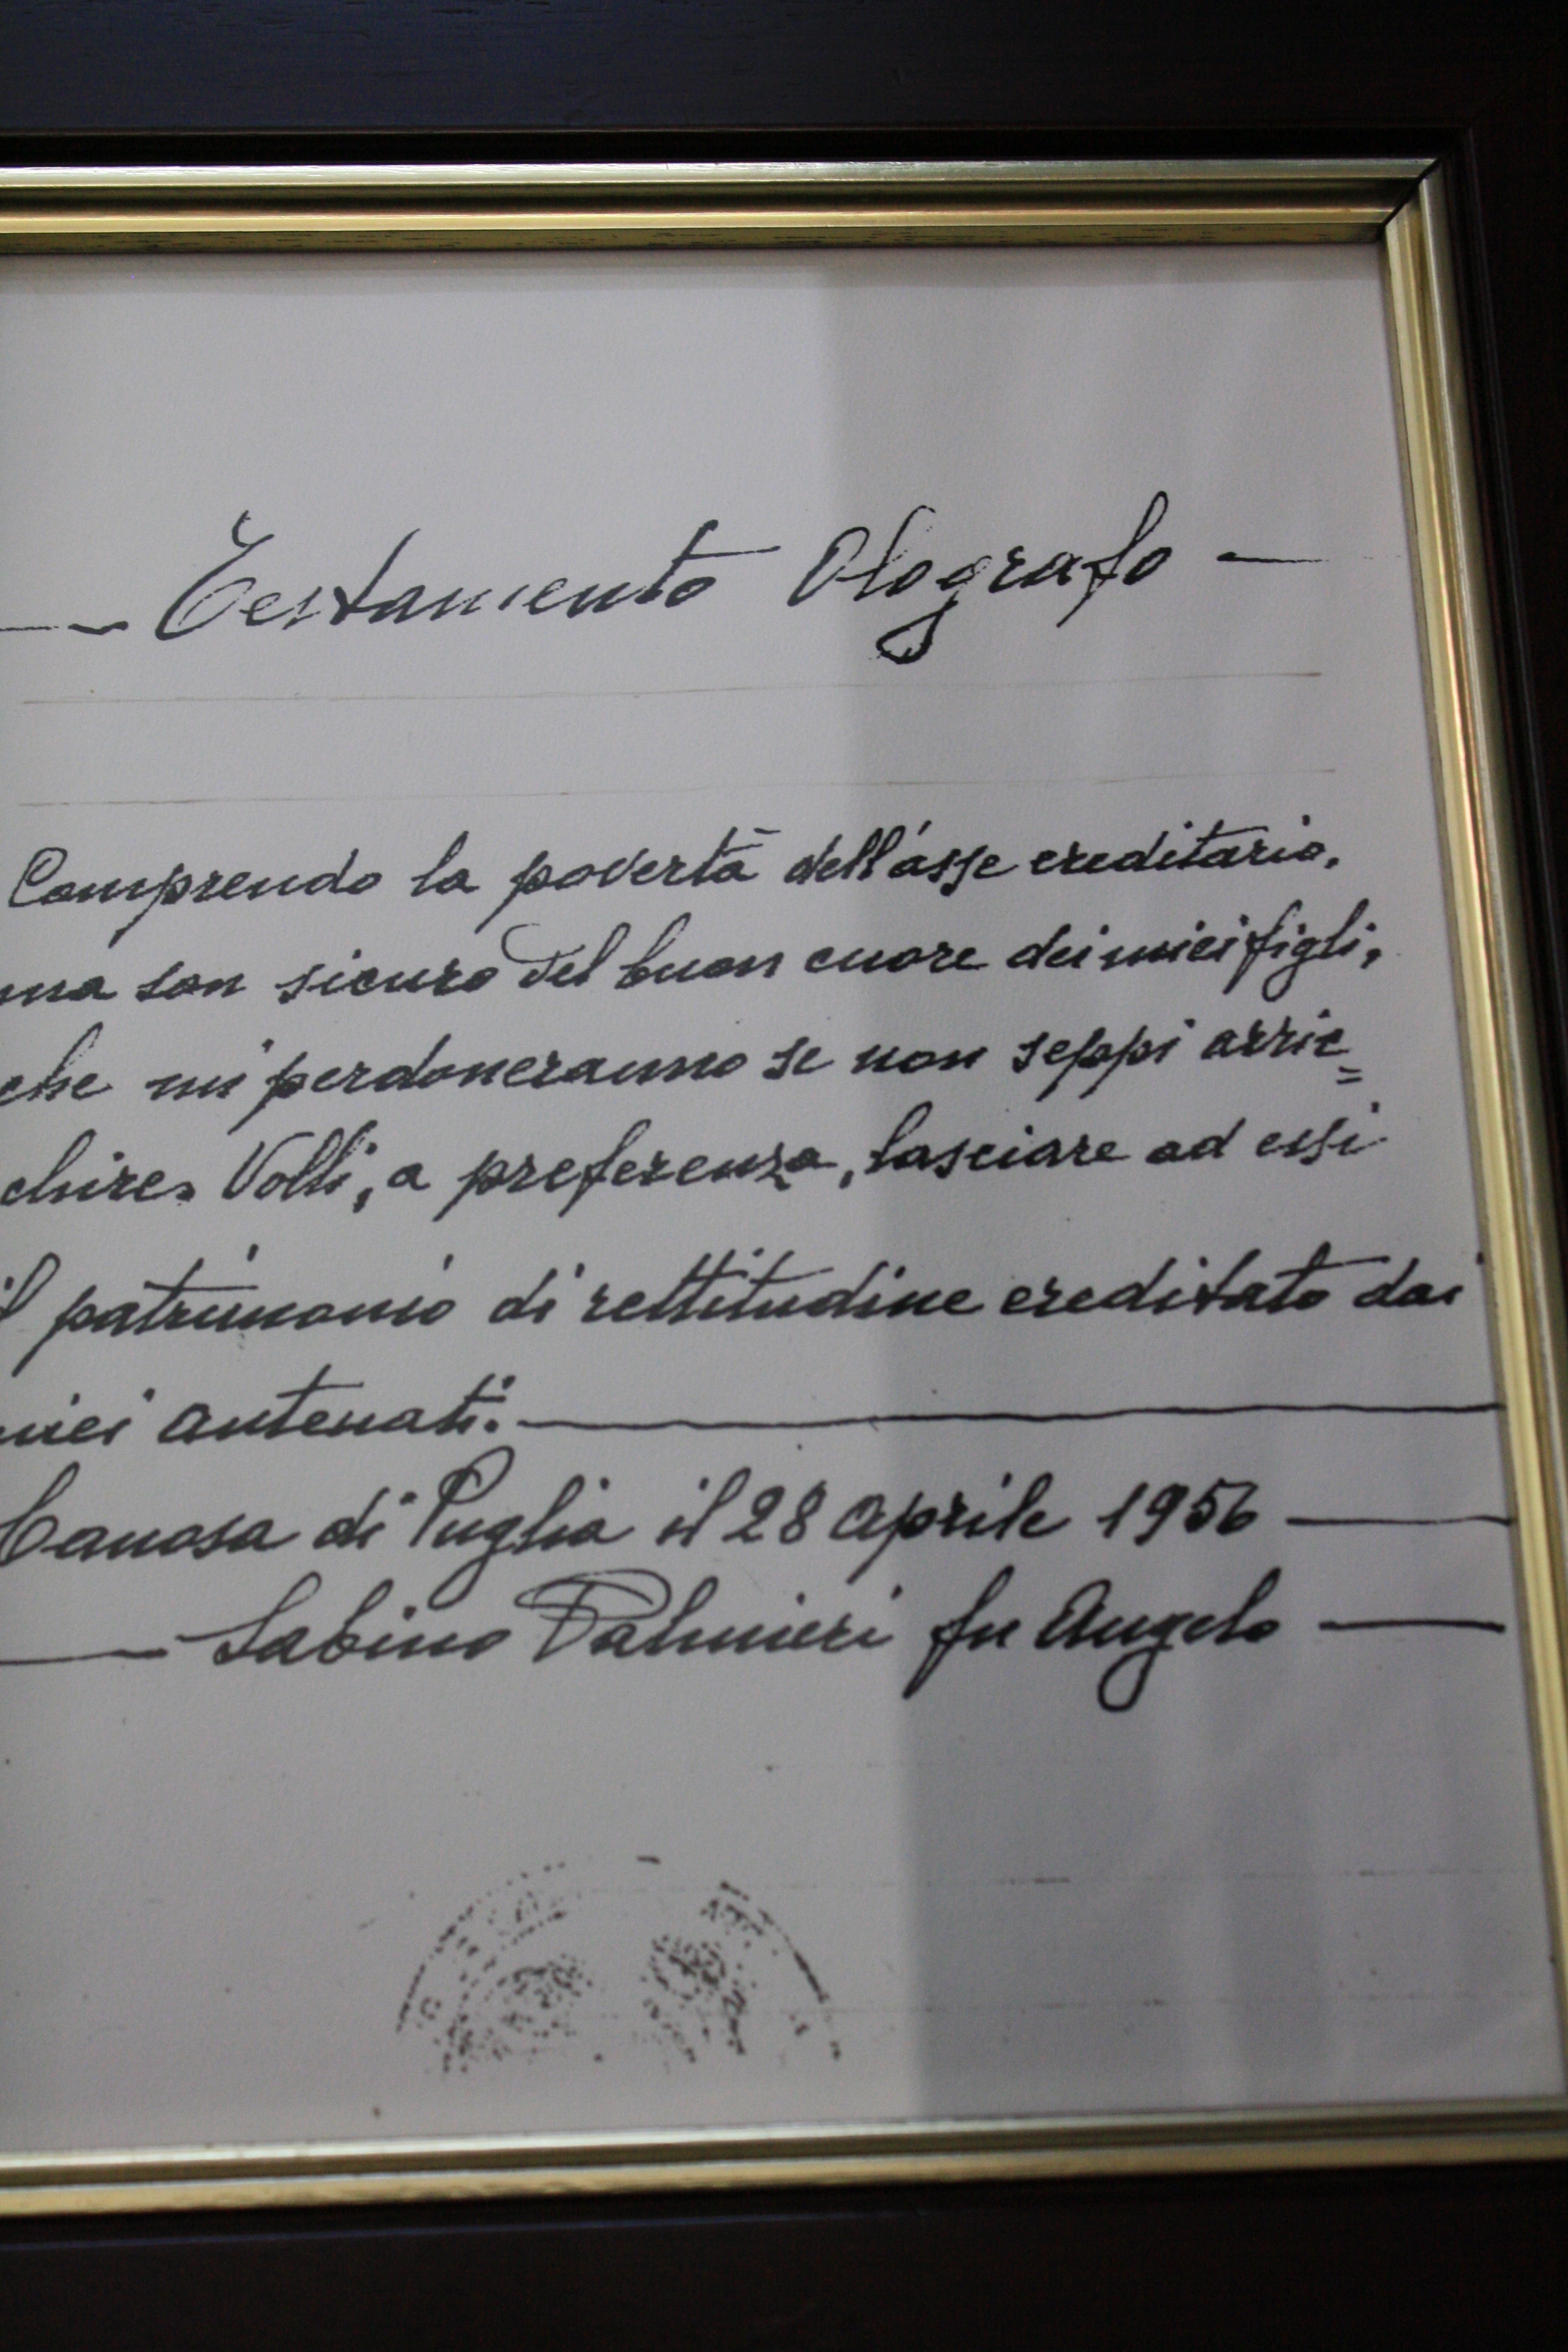 Testamento Olografo
Comprendo la povertà dell'asse ereditario,
ma son sicuro del buon cuore dei miei figli,
che mi perdoneranno se non seppi arric=
chire. Volli, a preferenza, lasciare ad essi
il patrimonio di rettitudine ereditato dai
miei antenati.
Canosa di Puglia il 28 aprile 1956
Sabino Palmieri fu Angelo